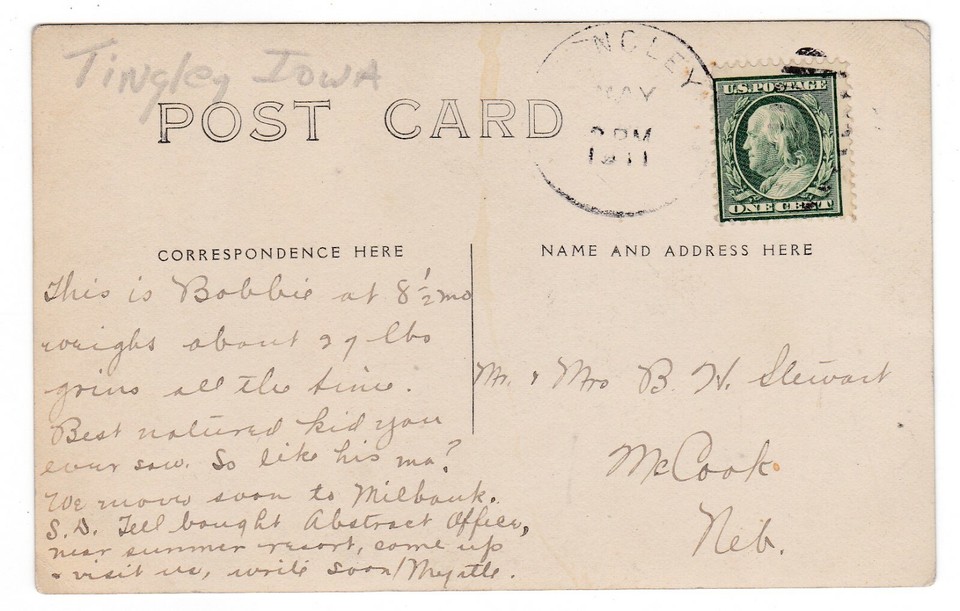 Tingley Iowa
POST CARD
NGLEY
MAY
2 PM
1911
U.S. POSTAGE
ONE CENT
CORRESPONDENCE HERE
NAME AND ADDRESS HERE
This is Bobbie at 8 1/2 mo
weighs about 27 lbs
grins all the time.
Best natured kid you
ever saw. So like his ma?
We move soon to Milbank.
S.D. Tell bought Abstract Office,
near summer resort, come up
& visit us, write soon/Myrtle.
Mr. & Mrs B. H. Stewart
McCook
Neb.